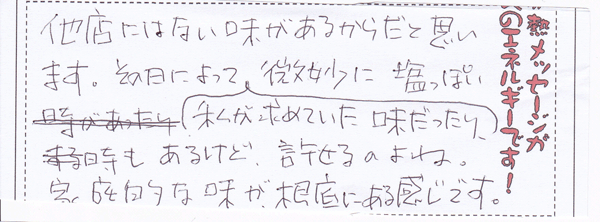 熱メッセージが
のエネルギーです！
他店にはない味があるからだと思い
ます。その日によって微妙に塩っぽい
時があったり私が求めていた味だったり、
時もあるけど、許せるのよね。
家庭的な味が根底にある感じです。